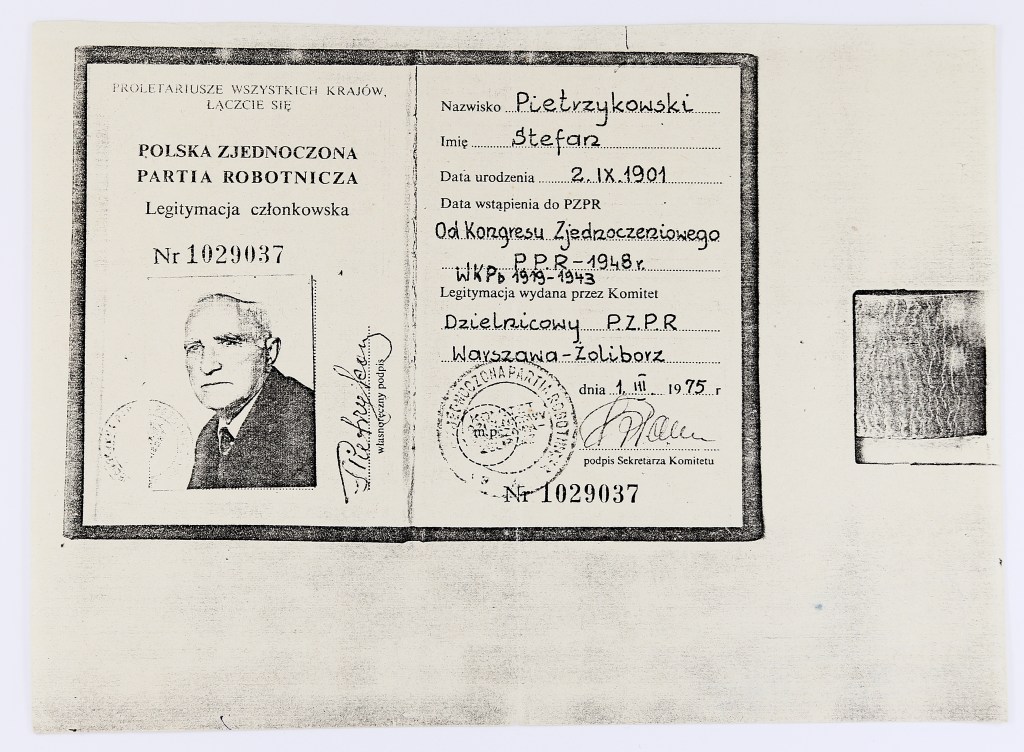 PROLETARIUSZE WSZYSTKICH KRAJÓW,
ŁĄCZCIE SIĘ
POLSKA ZJEDNOCZONA
PARTIA ROBOTNICZA
Legitymacja członkowska
Nr 1029037
własnoręczny podpis
Nazwisko Pietrzykowski
Imię Stefan
Data urodzenia 2.IX.1901
Data wstąpienia do PZPR
Od Kongresu Zjednoczeniowego
P.P.R-1948r.
WKPb 1919-1943
Legitymacja wydana przez Komitet
Dzielnicowy P.Z.P.R
Warszawa-Żoliborz
dnia 1.III. 1975 r
m.p.
podpis Sekretarza Komitetu
Nr 1029037